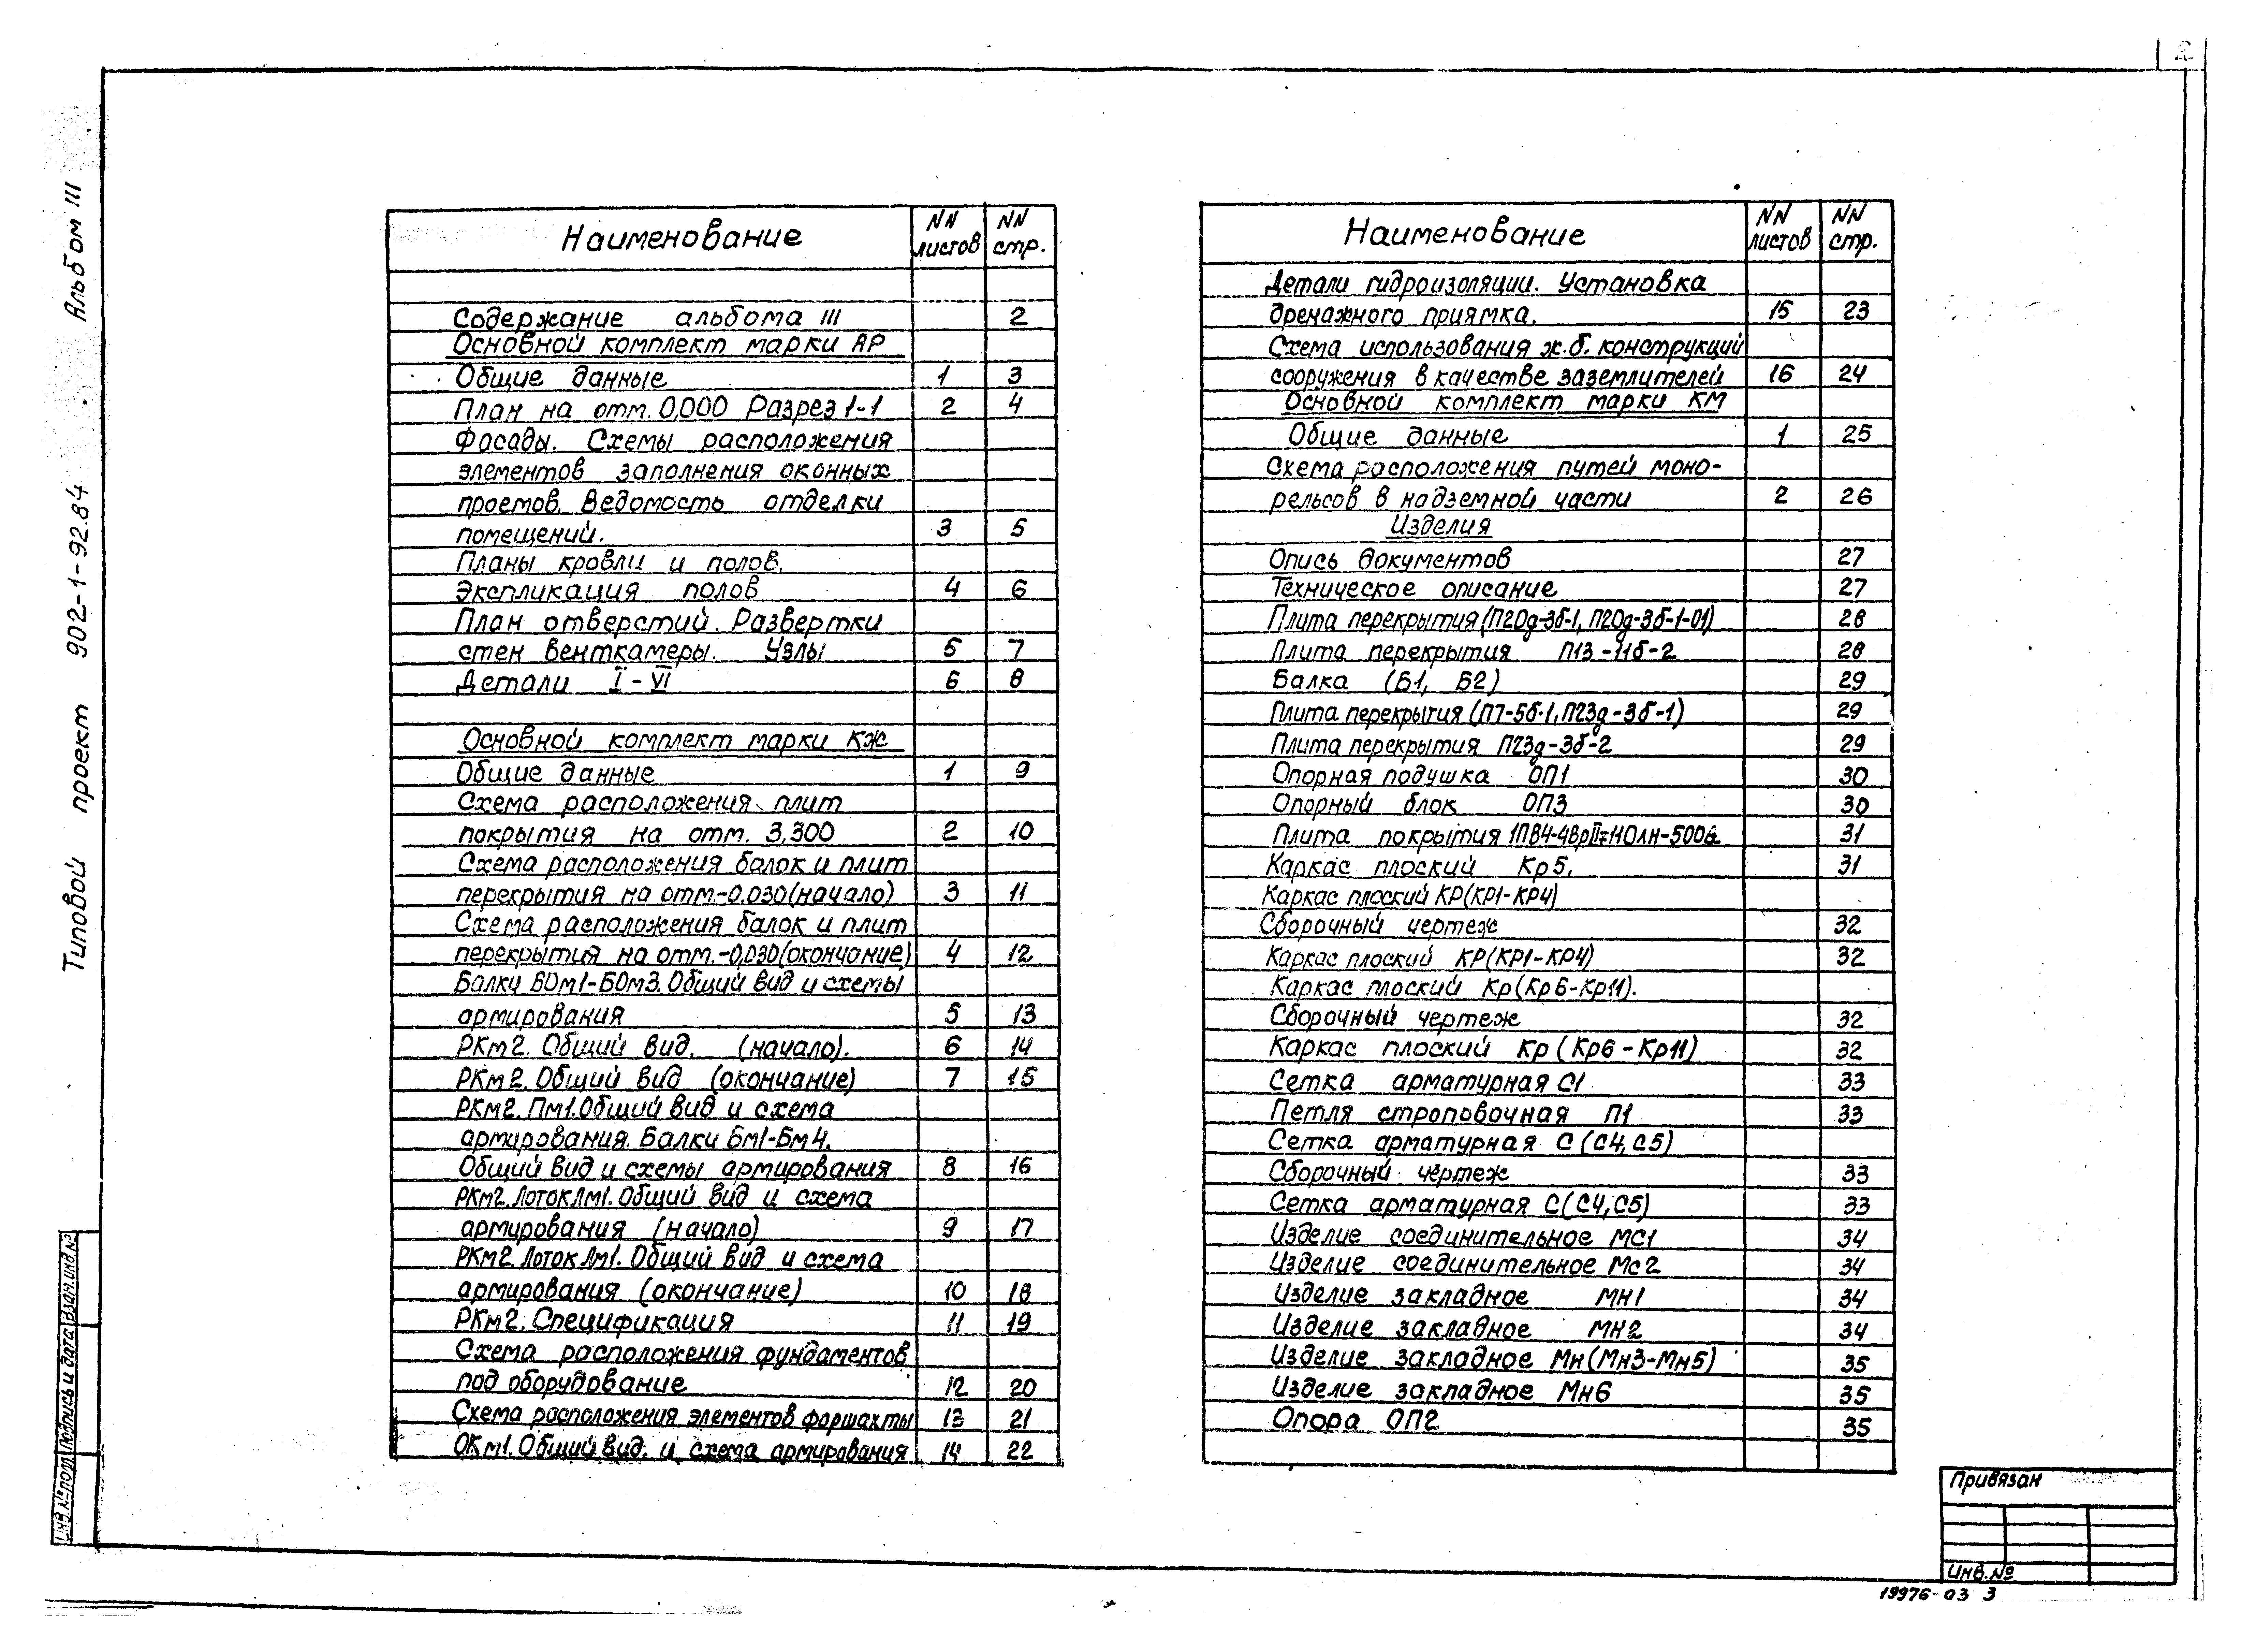 2
Альбом III
Типовой проект 902-1-92.84
Наименование NN листов NN стр.
Содержание альбома III 2
Основной комплект марки АР
Общие данные 1 3
План на отм. 0,000 Разрез 1-1 2 4
Фасады. Схемы расположения
элементов заполнения оконных
проемов. Ведомость отделки
помещений. 3 5
Планы кровли и полов.
Экспликация полов 4 6
План отверстий. Развертки
стен венткамеры. Узлы 5 7
Детали I - VI 6 8
Основной комплект марки КЖ
Общие данные 1 9
Схема расположения плит
покрытия на отм. 3,300 2 10
Схема расположения балок и плит
перекрытия на отм.-0,030(начало) 3 11
Схема расположения балок и плит
перекрытия на отм.-0,030(окончание) 4 12
Балки БОм1-БОм3. Общий вид и схемы
армирования 5 13
РКм2. Общий вид. (начало). 6 14
РКм2. Общий вид (окончание) 7 15
РКм2. Пм1. Общий вид и схема
армирования. Балки Бм1-Бм4.
Общий вид и схемы армирования 8 16
РКм2. Лоток Лм1. Общий вид и схема
армирования (начало) 9 17
РКм2. Лоток Лм1. Общий вид и схема
армирования (окончание) 10 18
РКм2. Спецификация 11 19
Схема расположения фундаментов
под оборудование 12 20
Схема расположения элементов форшахты 13 21
ОКм1. Общий вид. и схема армирования 14 22
Наименование NN листов NN стр.
Детали гидроизоляции. Установка
дренажного приямка. 15 23
Схема использования ж.б. конструкций
сооружения в качестве заземлителей 16 24
Основной комплект марки КМ
Общие данные 1 25
Схема расположения путей моно-
рельсов в надземной части 2 26
Изделия
Опись документов 27
Техническое описание 27
Плита перекрытия (П20д-3б-1, П20д-3б-1-01) 28
Плита перекрытия П13-11б-2 28
Балка (Б1, Б2) 29
Плита перекрытия (П7-5б-1, П23д-3б-1) 29
Плита перекрытия П23д-3б-2 29
Опорная подушка ОП1 30
Опорный блок ОП3 30
Плита покрытия 31
Каркас плоский Кр5. 31
Каркас плоский КР(КР1-КР4)
Сборочный чертеж 32
Каркас плоский КР(КР1-КР4) 32
Каркас плоский Кр(Кр6-Кр11).
Сборочный чертеж 32
Каркас плоский Кр (Кр6-Кр11) 32
Сетка арматурная С1 33
Петля строповочная П1 33
Сетка арматурная С (С4, С5)
Сборочный чертеж 33
Сетка арматурная С (С4, С5) 33
Изделие соединительное МС1 34
Изделие соединительное Мс2 34
Изделие закладное МН1 34
Изделие закладное МН2 34
Изделие закладное Мн(Мн3-Мн5) 35
Изделие закладное Мн6 35
Опора ОП2 35
Привязан
Инв. №
19976-03 3
Взам. инв. №
Подпись и дата
Инв. № подл.